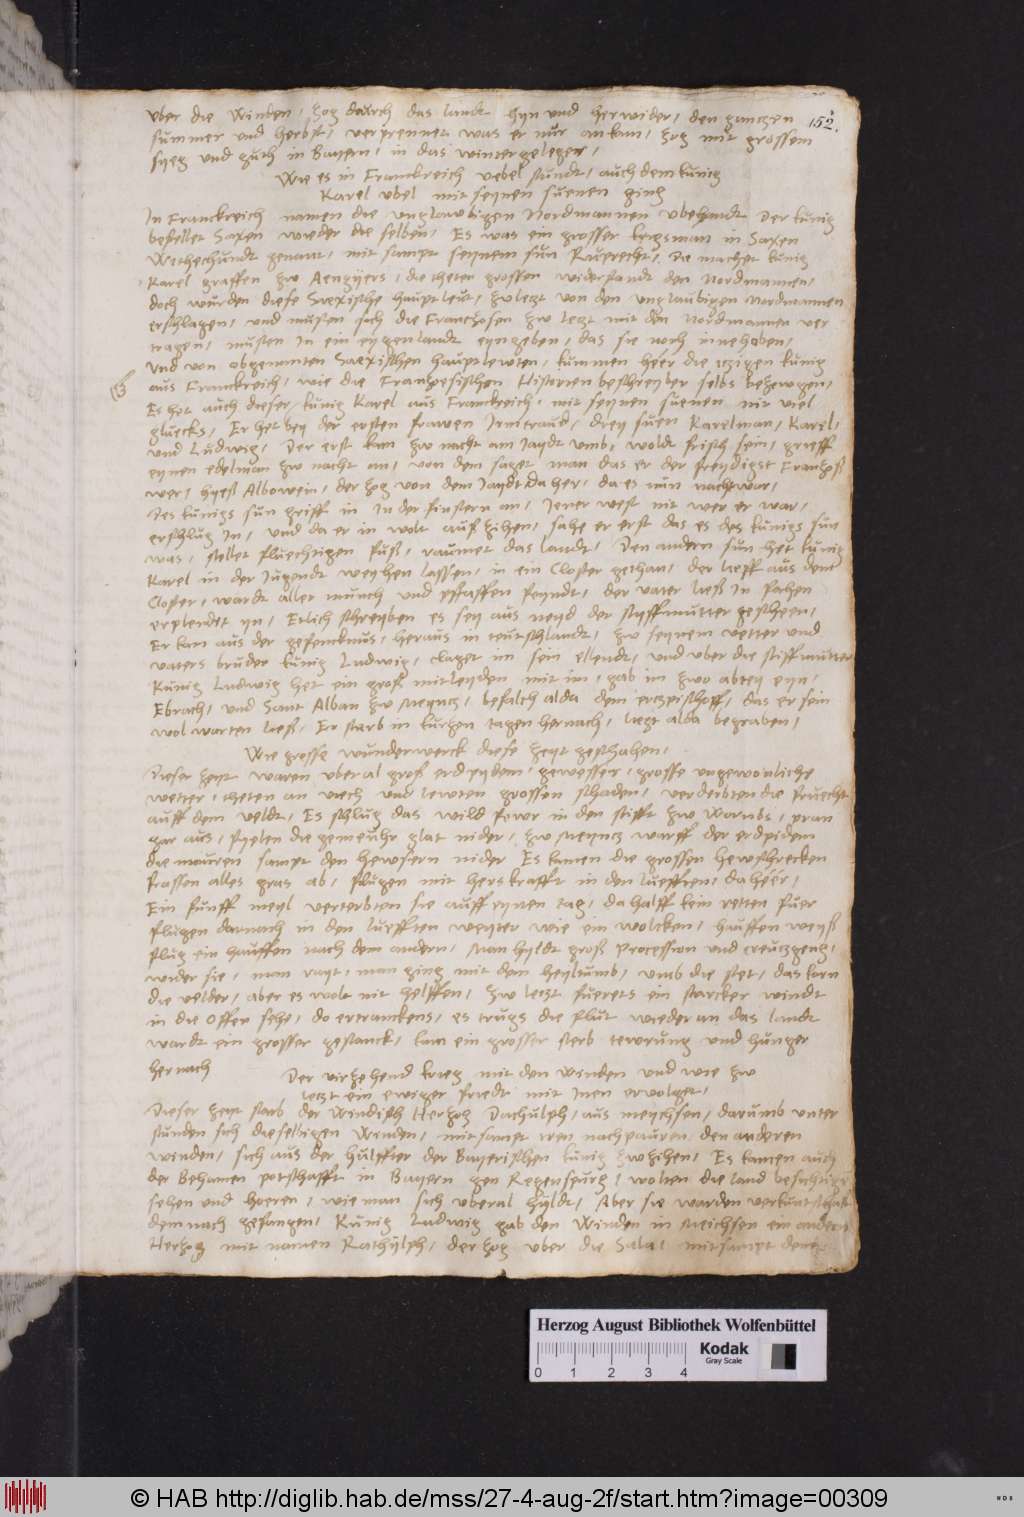 152.
vber die Winden, zog durch das landt hyn vnd herwider, den gantzen
summer vnd herbst, verprennet was er nur ankam, zog mit grossem
syeg vnd guth in Bayern, in das wintergeleger,
Wie es in Franckreich vebel stundt, auch dem kunig
Karel vbel mit seynen suenen ging
In Franckreich namen die vnglawbigen Nordmannen vberhandt Der kunig
bestellet Saxen wieder die selben, Es was ein grosser kriegsman in Saxen
Withechundt genant, mit sampt seynem sun Rueprecht, Die machet kunig
Karel graffen zw Aengyers, die theten grossen widerstandt den Nordmannen,
doch wurden diese Saexische hauptleut, zuletzt von den vnglaubigen Nordmannen
erschlagen, vnd musten sich die Franchosen zw letzt mit den Nordmannen ver
tragen, musten In ein eygen landt eyngeben, das sie noch innehaben,
vnd von obgenanten Saexischen hauptlewten, kummen heer die itzigen kunig
aus Franckreich, wie die Franzoesischen Historien beschreyber selbs bezewgen,
Es hat auch dieser kunig Karel aus Franckreich, mit seynen suenen nit viel
gluecks, Er het bey der ersten frawen Irmtraud, drey suen Karelman, Karel,
vnd Ludwig, Der erst kam zw nacht am Jaydt vmb, woldt frisch sein, grieff
eynen edelman zw nacht an, von dem saget man das er der freydigst Franzoß
wer, hyeß Albowein, der zog von dem Jaydt daher, da es nun nacht war,
Des kunigs sun griff in In der finstern an, Jener west nit wer er war,
erschlug In, vnd da er in wolt auß zihen, sahe er erst das es des kunigs sun
was, stellet fluechtigen fuß, raumet das landt, Den andern sun het kunig
Karel in der Jugendt weyhen lassen, in ein Closter gethan, der lieff aus dem
Closter, wardt aller munch vnd pfaffen feyndt, der vater ließ In fahen
erplendet yn, Etlich schreyben es sey aus neyd der styffmutter geschehen,
Er kam aus der gefencknus, heraus in teutschlandt, zw seynem vetter vnd
vaters bruder kunig Ludwig, claget im sein ellendt, vnd vber die stiffmutter
Kunig Ludwig het ein groß mitleyden mit im, gab im zwo abtey eyn,
Ebrach, vnd Sant Alban zw Meyntz, befalch alda dem ertzbischoff, das er sein
wol warten ließ, Er starb in kurtzen tagen hernach, liegt alda begraben,
Wie grosse wunderwerck diese zeyt geschahen,
Dieser zeyt waren vberal groß erdpydem, gewesser, grosse vngewonliche
wetter, theten an viech vnd lewten grossen schaden, verderbten die fruecht
auff dem veldt, Es schlug das wild fewr in den stifft zw Wormbs, pran
gar aus, fyelen die gemeuhr glat nider, zw Meyntz warff der erdpidem
die mauren sampt den hewsern nider Es kamen die grossen hewschrecken
frassen alles gras ab, flugen mit hers krafft in den lueften, daheer,
Ein funff meyl verterbten sie auff eynen tag, da halff kein retten fuer
flugen darnach in den luefften weyter wie ein wolcken, hauffen weyß
flug ein hauffen nach dem andern, Man hyeldt groß procession vnd creutzgeng,
wider sie, man rayt, man ging mit dem heyltumb, vmb die stet, das korn
die velder, aber es wolt nit helffen, zw letzt fuerets ein starcker windt
in die Offen sehe, do ertranckens, es trugs die flut wieder an das landt
wardt ein grosser gestanck, kam ein grosser sterb tewrung vnd hunger
hernach
Der virzehend krieg mit den Winden vnd wie zw
letzt ein ewiger friedt mit Inen ervolget,
Dieser zeyt starb der Windisch Herzog Dachulph, aus meychsen, darumb vnter
stunden sich dieselbigen Winden, mitsampt iren nachpauren, den anderen
winden, sich aus der hulffter der Bayerischen kunig zw zihen, Es kamen auch
der Behamen potschafft in Bayern gen Regenspurg, wolten die land besichtigen
sehen vnd hoeren, wie man sich vberal hyldt, Aber sie warden verkuntschaft
demnach gefangen, Kunig Ludwig gab den Winden in Meichsen ein andern
Herzog mit namen Rathylph, der zog vber die Sala, mitsampt dem
Herzog August Bibliothek Wolfenbüttel
0 1 2 3 4
Kodak
Gray Scale
© HAB http://diglib.hab.de/mss/27-4-aug-2f/start.htm?image=00309